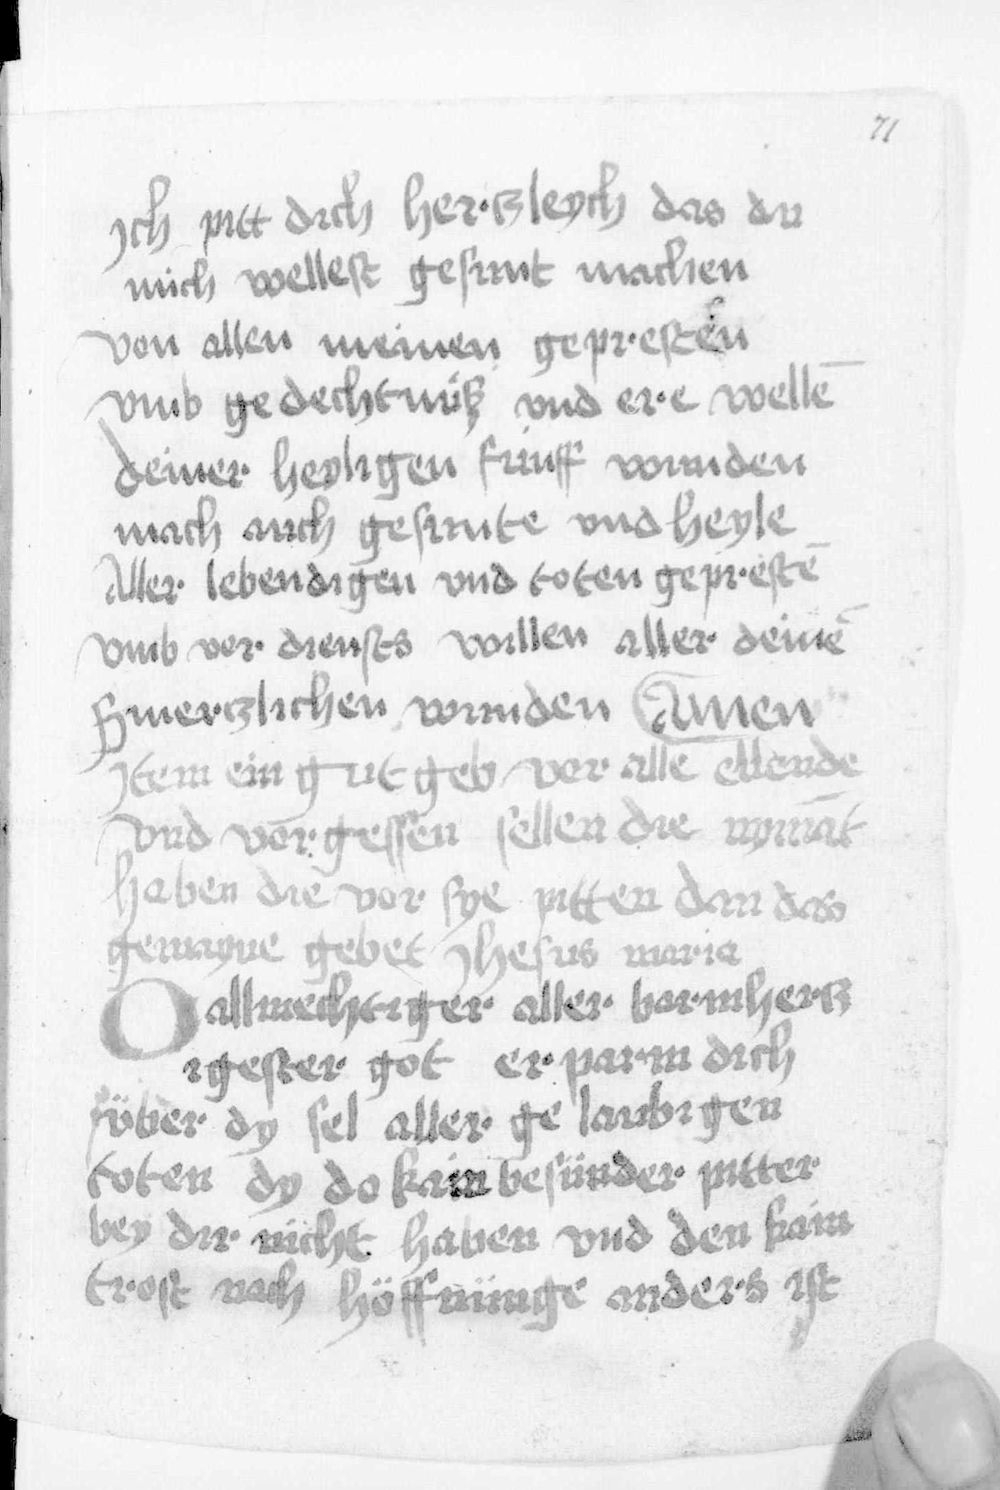 71
Jch pitt dich hertzleych das du
mich wellest gesunt machen
von allen meinen gepresten
vmb gedechtnüß vnd ere wellē
deiner heyligen fünff wunden
mach auch gesunte vnd heyle
Aller lebendigen vnd toten geprestē
vmb ver diensts willen aller deinē
Smertzlichen wunden Amen
Jtem ein gut geb vor alle ellende
vnd vorgessen sellen die nymāt
haben die vor sye pitten dan das
gemayne gebet Jhesus maria
O allmechtiger aller barmhertz
igester got er parm dich
über dy sel aller ge laubigen
toten dy do kain besünder pitter
bey dir nicht haben vnd den kain
trost nach höffnünge anders ist